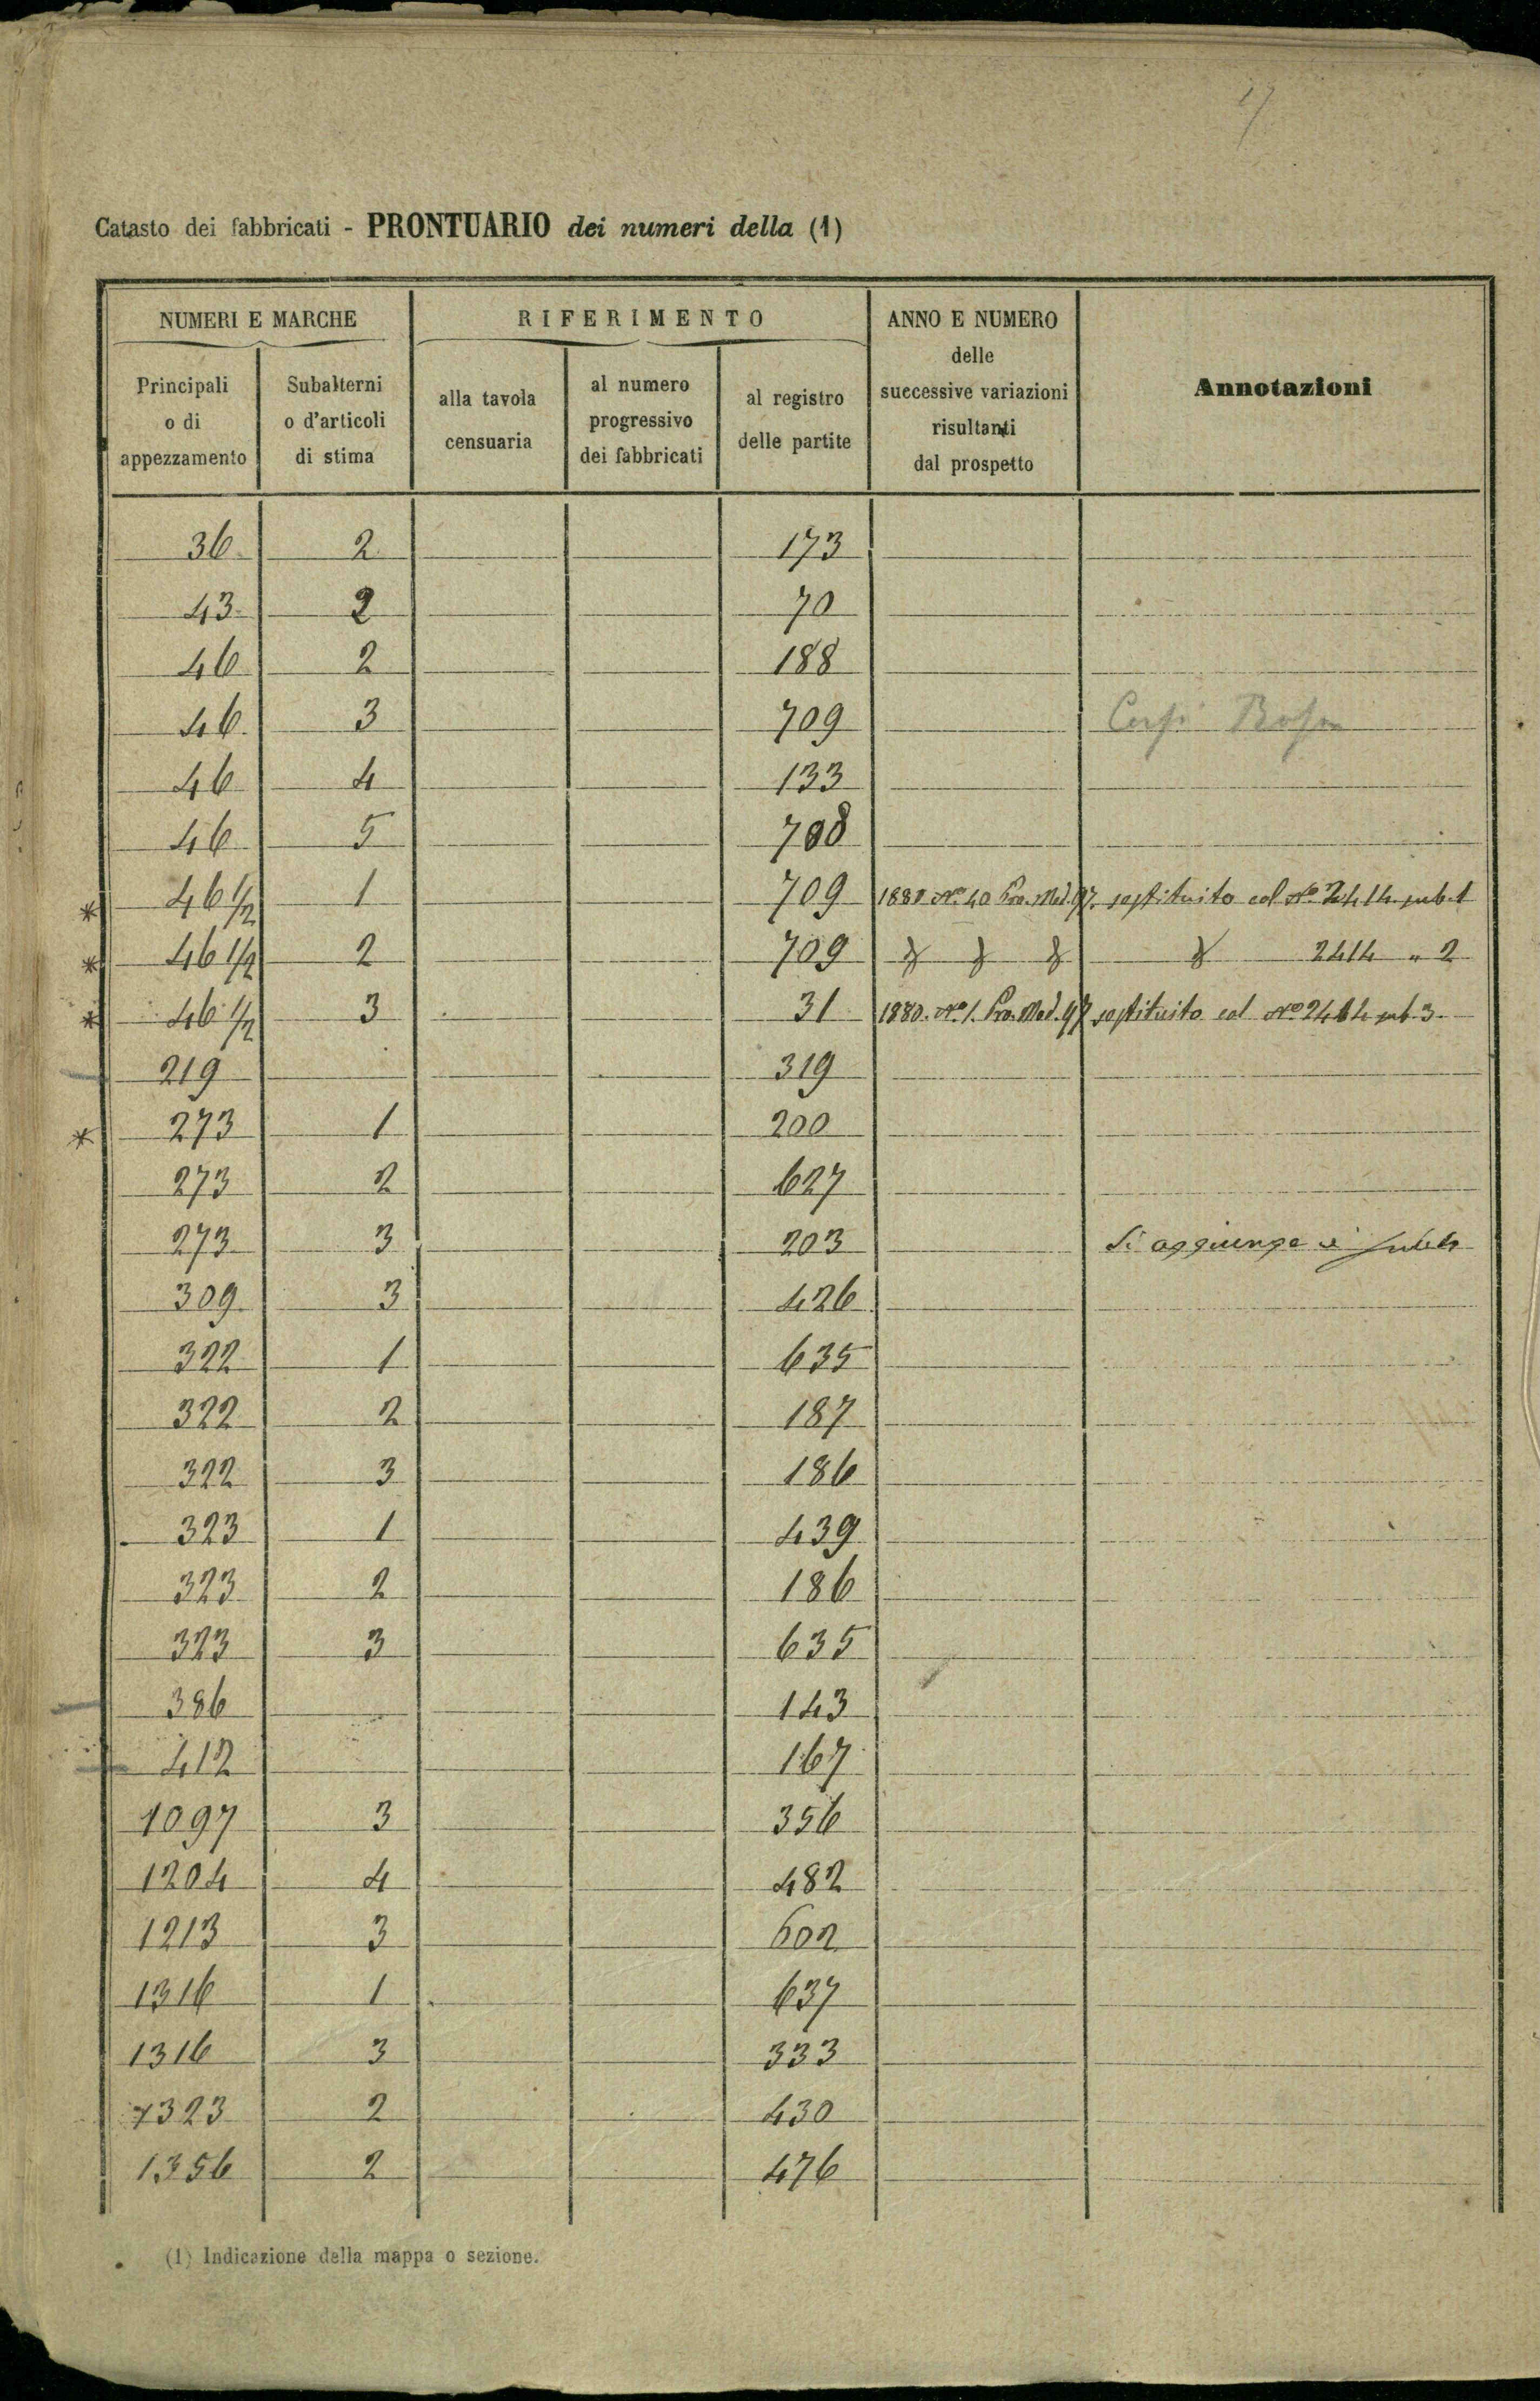 17
Catasto dei fabbricati - PRONTUARIO dei numeri della (1)
NUMERI E MARCHE
RIFERIMENTO
ANNO E NUMERO
delle
successive variazioni
risultanti
dal prospetto
Annotazioni
Principali
o di
appezzamento
Subalterni
o d'articoli
di stima
alla tavola
censuaria
al numero
progressivo
dei fabbricati
al registro
delle partite
36 2 173
43 2 70
46 2 188
46 3 709
46 4 133
46 5 708
* 46 1/2 1 709 1881 No. 40 Pro. Mod. 97. sostituito col No 2414 sub. 1
* 46 1/2 2 709 2414 " 2
* 46 1/2 3 31 1880. No. 1. Pro. Mod. 97 sostituito col No 2414 sub. 3.
219 319
* 273 1 200
273 2 627
273 3 203 Si aggiunge
309 3 426
322 1 635
322 2 187
322 3 186
323 1 439
323 2 186
323 3 635
386 143
412 167
1097 3 356
1204 4 482
1213 3 602
1316 1 637
1316 3 333
1323 2 430
1356 2 476
(1) Indicazione della mappa o sezione.